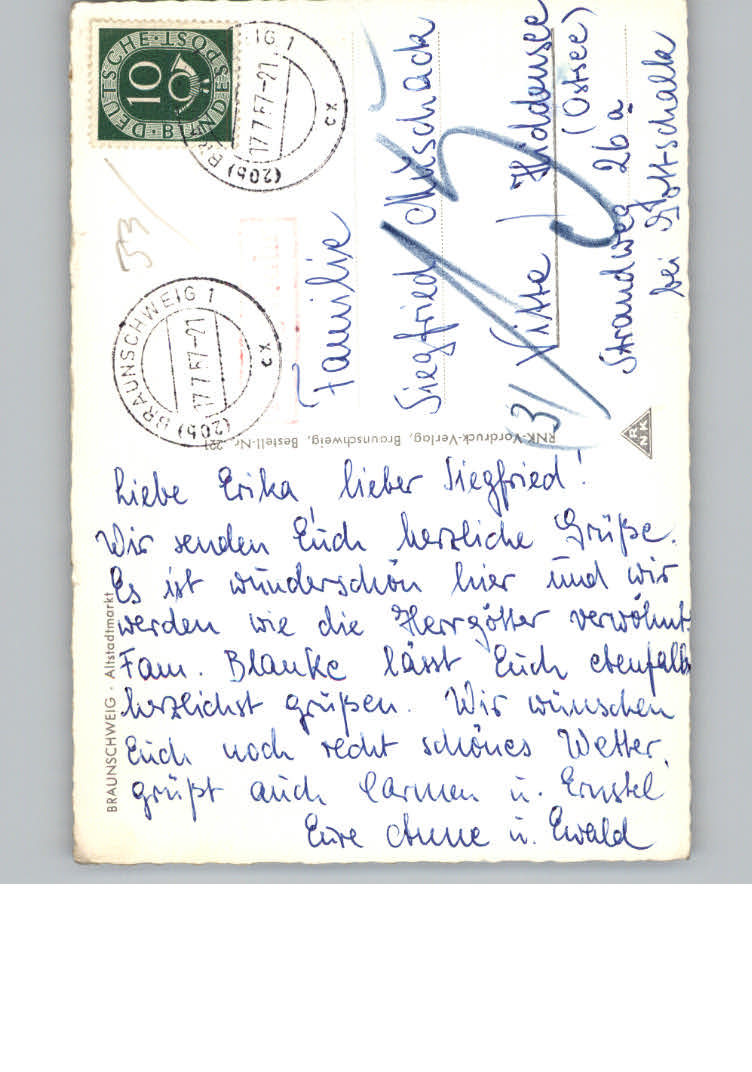 Liebe Erika, lieber Siegfried!
Wir senden Euch herzliche Grüße.
Es ist wunderschön hier und wir
werden wie die Herrgötter verwöhnt.
Fam. Blanke lässt Euch ebenfalls
herzlichst grüßen. Wir wünschen
Euch noch recht schönes Wetter,
grüßt auch Carmen u. Ernstel
Eure Anne u. Ewald
Familie
Siegfried Muschack
(3) Vitte / Hiddensee
(Ostsee)
Strandweg 26a
bei Gottschalk
DEUTSCHE BUNDESPOST
10
(20b) BRAUNSCHWEIG 1
17.7.57-21
cx
(20b) BRAUNSCHWEIG 1
17.7.57-21
cx
53
RNK-Vordruck-Verlag, Braunschweig, Bestell-Nr. 221
RNK
BRAUNSCHWEIG · Altstadtmarkt